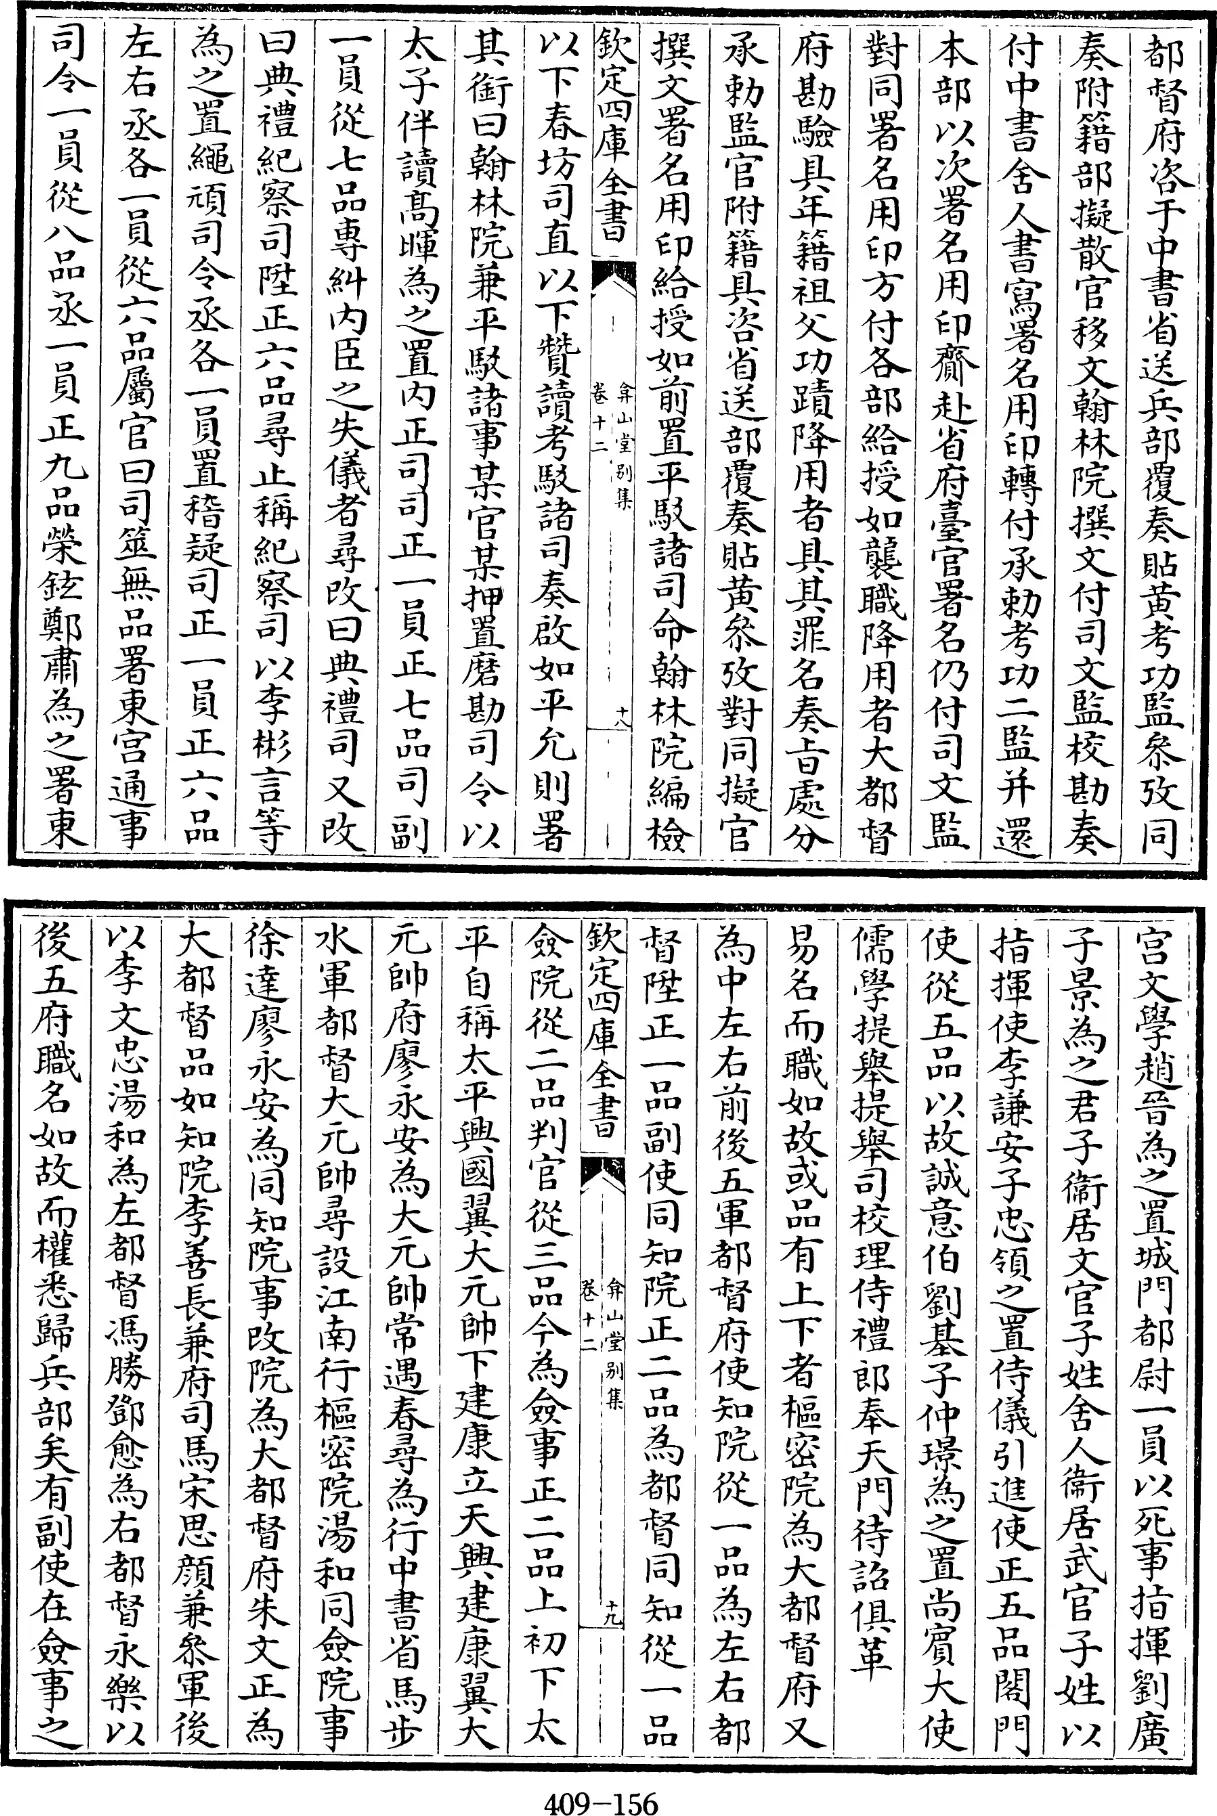 都督府咨于中書省送兵部覆奏貼黄考功監叅攷同
奏附籍部擬散官移文翰林院撰文付司文監校勘奏
付中書舍人書寫署名用印轉付承勅考功二監并還
本部以次署名用印齎赴省府臺官署名仍付司文監
對同署名用印方付各部給授如襲職降用者大都督
府勘驗具年籍祖父功蹟降用者具其罪名奏㫖處分
承勅監官附籍具咨省送部覆奏貼黄叅攷對同擬官
撰文署名用印給授如前置平駁諸司命翰林院編檢
欽定四庫全書
弇山堂别集
卷十二
十八
以下春坊司直以下贊讀考駁諸司奏啟如平允則署
其銜曰翰林院兼平駁諸事某官某押置磨勘司令以
太子伴讀髙暉為之置内正司司正一員正七品司副
一員從七品專糾内臣之失儀者尋改曰典禮司又改
曰典禮紀察司陞正六品尋止稱紀察司以李彬言等
為之置繩頑司令丞各一員置稽疑司正一員正六品
左右丞各一員從六品屬官曰司筮無品署東宫通事
司令一員從八品丞一員正九品榮鉉鄭肅為之署東
宫文學趙晉為之置城門都尉一員以死事指揮劉廣
子景為之君子衞居文官子姓舍人衞居武官子姓以
指揮使李謙安子忠領之置侍儀引進使正五品閣門
使從五品以故誠意伯劉基子仲璟為之置尚賔大使
儒學提舉提舉司校理侍禮郎奉天門待詔俱革
易名而職如故或品有上下者樞密院為大都督府又
為中左右前後五軍都督府使知院從一品為左右都
督陞正一品副使同知院正二品為都督同知從一品
欽定四庫全書
弇山堂别集
卷十二
十九
僉院從二品判官從三品今為僉事正二品上初下太
平自稱太平興國翼大元帥下建康立天興建康翼大
元帥府廖永安為大元帥常遇春尋為行中書省馬步
水軍都督大元帥尋設江南行樞密院湯和同僉院事
徐達廖永安為同知院事改院為大都督府朱文正為
大都督品如知院李善長兼府司馬宋思顔兼叅軍後
以李文忠湯和為左都督馮勝鄧愈為右都督永樂以
後五府職名如故而權悉歸兵部矣有副使在僉事之
409-156